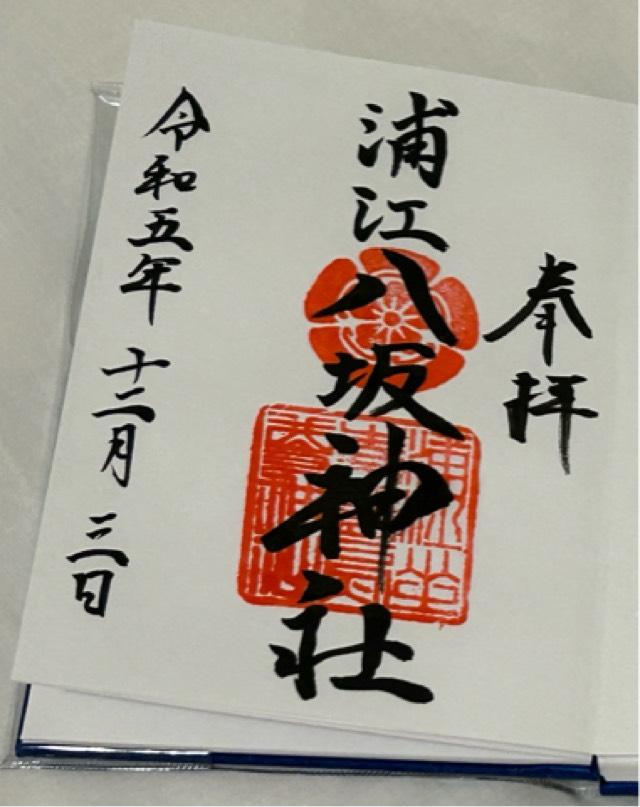 奉拝
浦江八坂神社
令和五年十二月三日